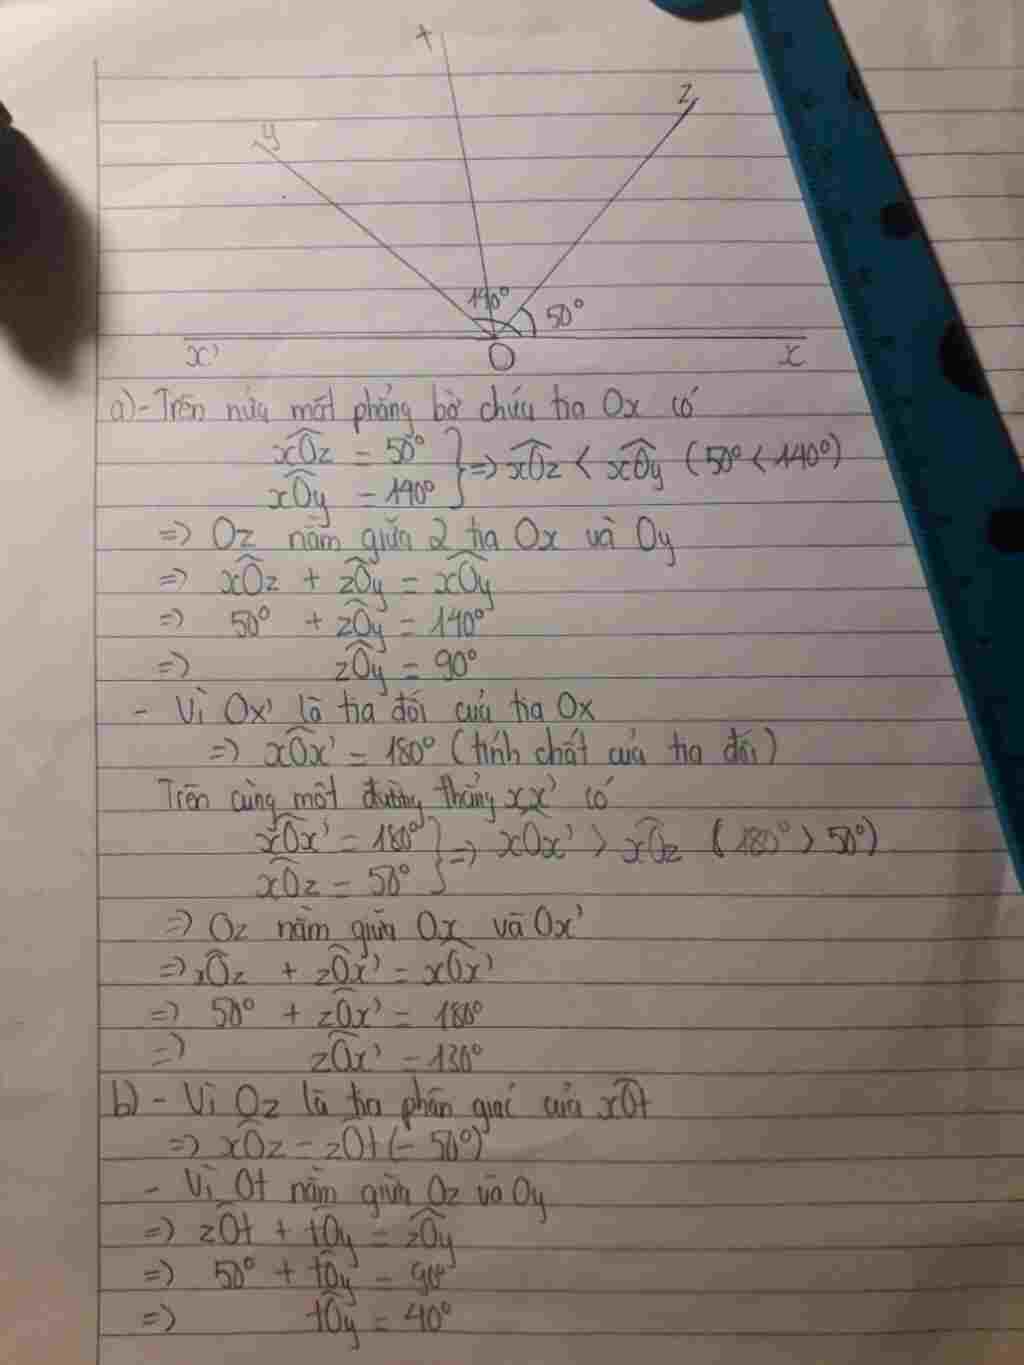 t
z
y
140°
50°
x'
O
x
a) - Trên nửa mặt phẳng bờ chứa tia Ox có
xÔz = 50°
xÔy = 140° } => xÔz < xÔy (50° < 140°)
=> Oz nằm giữa 2 tia Ox và Oy
=> xÔz + zÔy = xÔy
=> 50° + zÔy = 140°
=> zÔy = 90°
- Vì Ox' là tia đối của tia Ox
=> xÔx' = 180° (tính chất của tia đối)
Trên cùng một đường thẳng xx' có
xÔx' = 180°
xÔz = 50° } => xÔx' > xÔz (180° > 50°)
=> Oz nằm giữa Ox và Ox'
=> xÔz + zÔx' = xÔx'
=> 50° + zÔx' = 180°
=> zÔx' = 130°
b) - Vì Oz là tia phân giác của xÔt
=> xÔz = zÔt (= 50°)
- Vì Ot nằm giữa Oz và Oy
=> zÔt + tÔy = zÔy
=> 50° + tÔy = 90°
=> tÔy = 40°